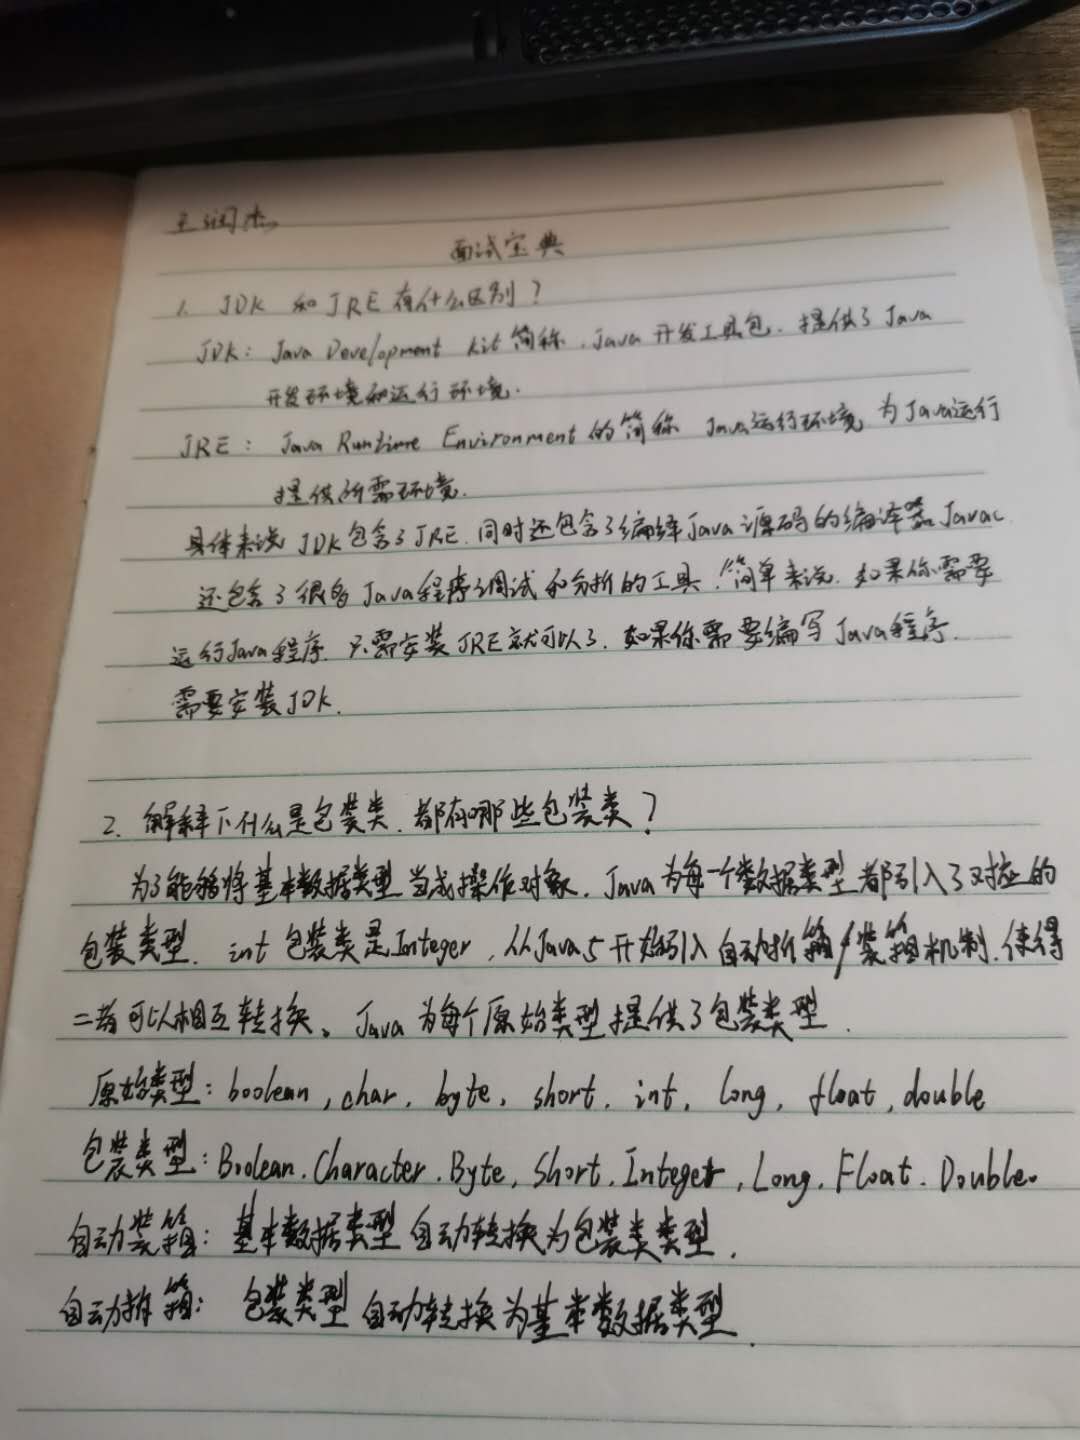 王润杰
面试宝典
1. JDK 和 JRE 有什么区别?
JDK: Java Development Kit 简称, Java 开发工具包. 提供了 Java
开发环境和运行环境.
JRE: Java Runtime Environment 的简称 Java运行环境 为Java运行
提供所需环境.
具体来说 JDK包含了JRE, 同时还包含了编译Java源码的编译器Javac
还包含了很多Java程序调试和分析的工具, 简单来说, 如果你需要
运行Java程序, 只需安装JRE就可以了, 如果你需要编写Java程序,
需要安装JDK.
2. 解释下什么是包装类, 都有哪些包装类?
为了能够将基本数据类型当成操作对象, Java为每一个数据类型都引入了对应的
包装类型, int包装类是Integer, 从Java5开始引入自动拆箱/装箱机制, 使得
二者可以相互转换。Java为每个原始类型提供了包装类型.
原始类型: boolean, char, byte, short, int, long, float, double
包装类型: Boolean, Character, Byte, Short, Integer, Long, Float, Double。
自动装箱: 基本数据类型自动转换为包装类类型.
自动拆箱: 包装类型自动转换为基本数据类型.